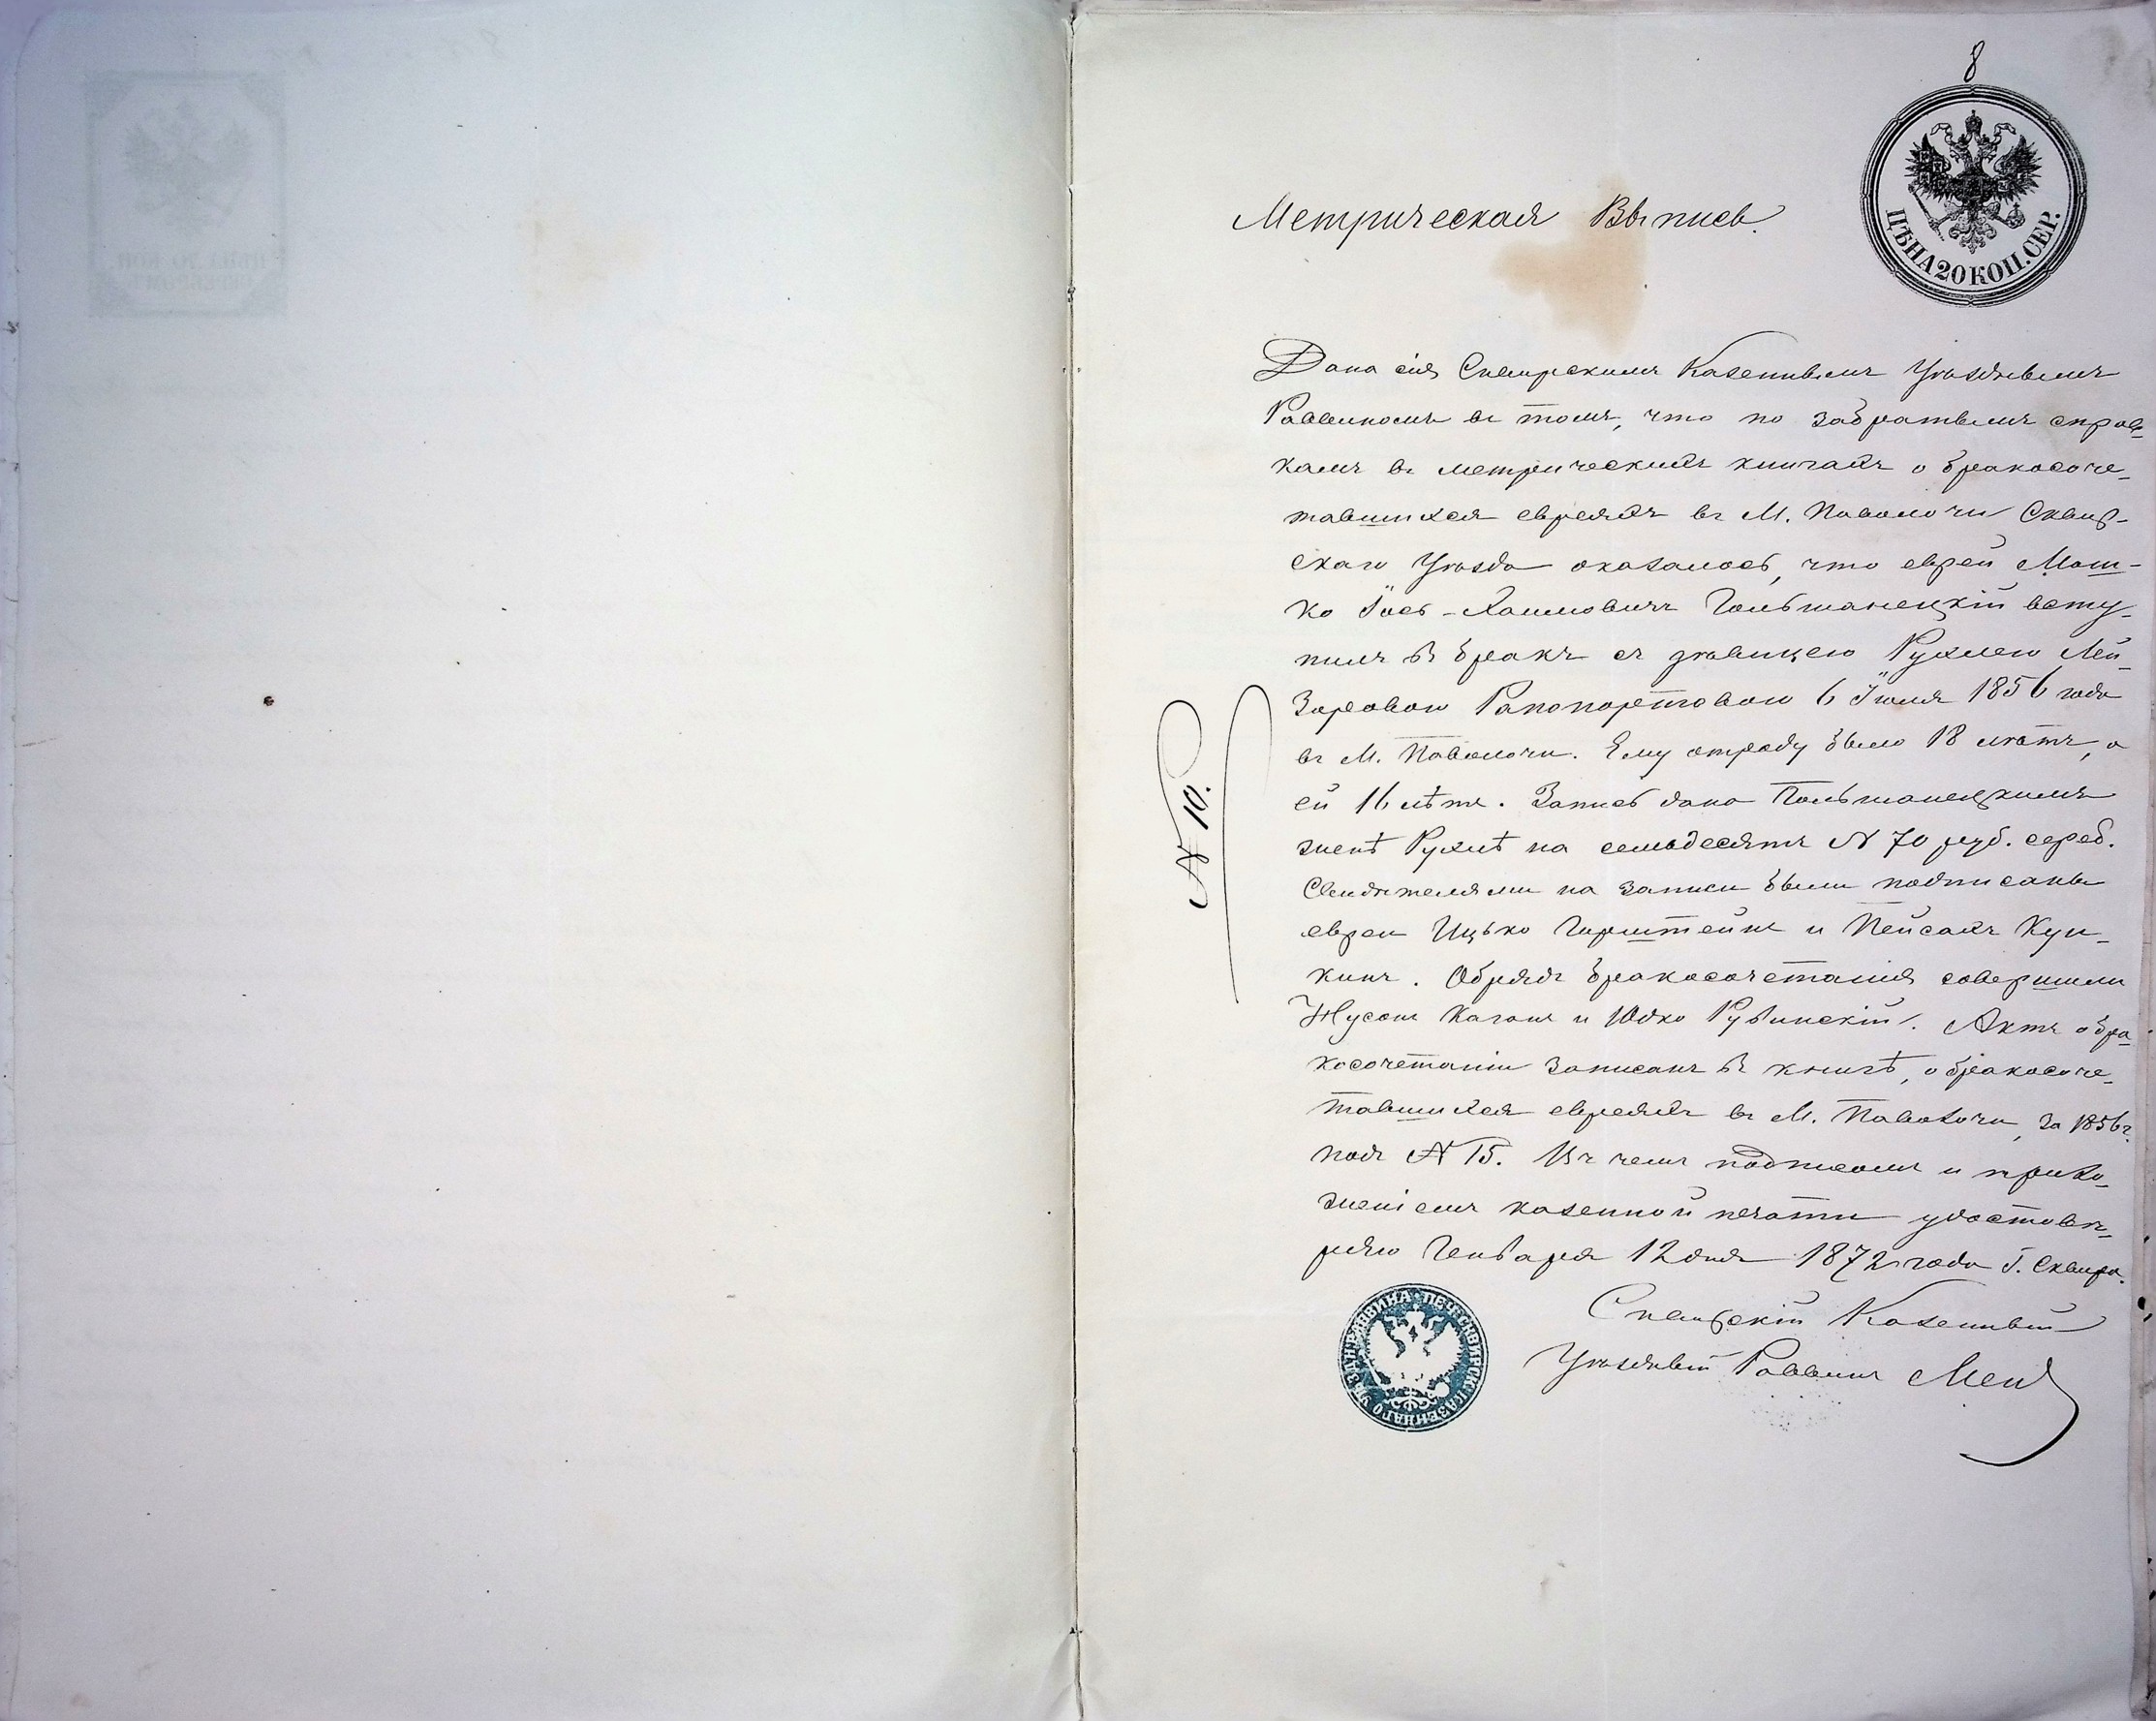 8
ЦѢНА 20 КОП. СЕР.
Метрическая Выпись.
Дана сія Сквирскимъ Казеннымъ Уѣзднымъ
Раввиномъ въ томъ, что по забратымъ справ-
камъ въ метрическихъ книгахъ о бракосоче-
тавшихся евреяхъ въ М. Паволочи Сквир-
скаго Уѣзда оказалось, что еврей Мош-
ко Іось-Хаимовичъ Гольшанецкій всту-
пилъ въ бракъ съ дѣвицею Рухлею Лей-
заровою Рапопортовою 6 Іюля 1856 года
въ М. Паволочи. Ему отроду было 18 лѣтъ, а
ей 16 лѣтъ. Запись дана Гольшанецкимъ
женѣ Рухлѣ на семьдесятъ № 70 руб. сереб.
Свидѣтелями на записи были подписаны
евреи Ицько Горштейнъ и Пейсахъ Куп-
кинъ. Обрядъ бракосочетанія совершили
Нусонъ Каганъ и Юдко Рувинскій. Актъ о бра-
косочетаніи записанъ въ книгѣ, о бракосоче-
тавшихся евреяхъ въ М. Паволочи, за 1856 г.
подъ № 15. Въ чемъ подписомъ и прило-
женіемъ казенной печати удостовѣ-
ряю Генваря 12 дня 1872 года Г. Сквира.
Сквирскій Казенный
Уѣздный Раввинъ
№ 10.
ПЕЧ. СКВИРСК. КАЗЕННАГО УѢЗДН. РАВВИНА